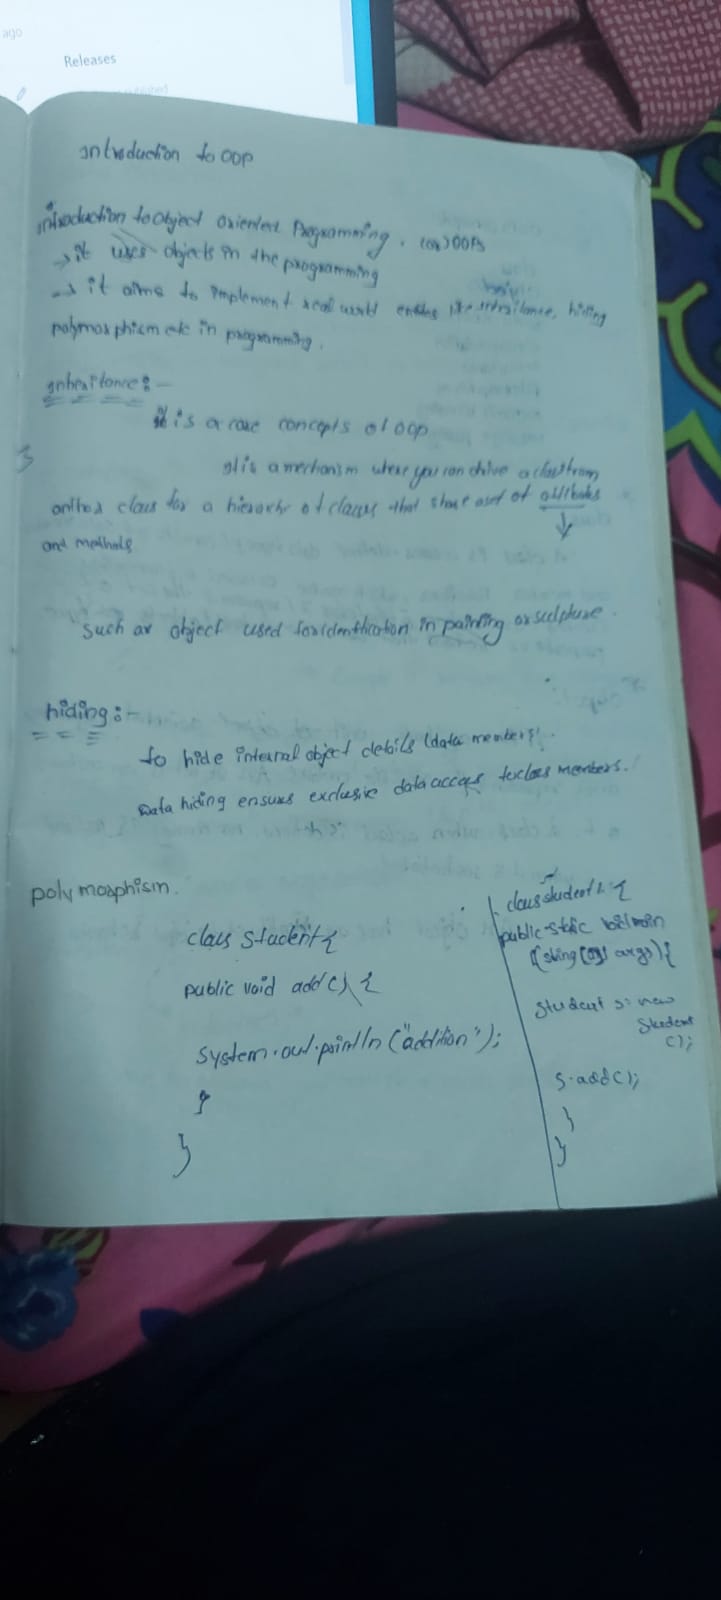 ago
Releases
introduction to OOP
introduction to object oriented Programming. (or) OOPs
→ it uses objects in the programming
→ it aims to implement real world entities like inheritance, hiding
polymorphism etc in programming.
inheritance:-
it is a core concepts of OOP
It is a mechanism where you can drive a class from
another class for a hierarchy of classes that share a set of attributes
and methods
such as object used for identification in painting or sculpture.
hiding:-
to hide internal object details (data members).
Data hiding ensures exclusive data access to class members.
polymorphism.
class Student {
public void add() {
System.out.println("addition");
}
}
class student1 {
public static void main
(string args) {
Student s = new
Student
();
s.add();
}
}